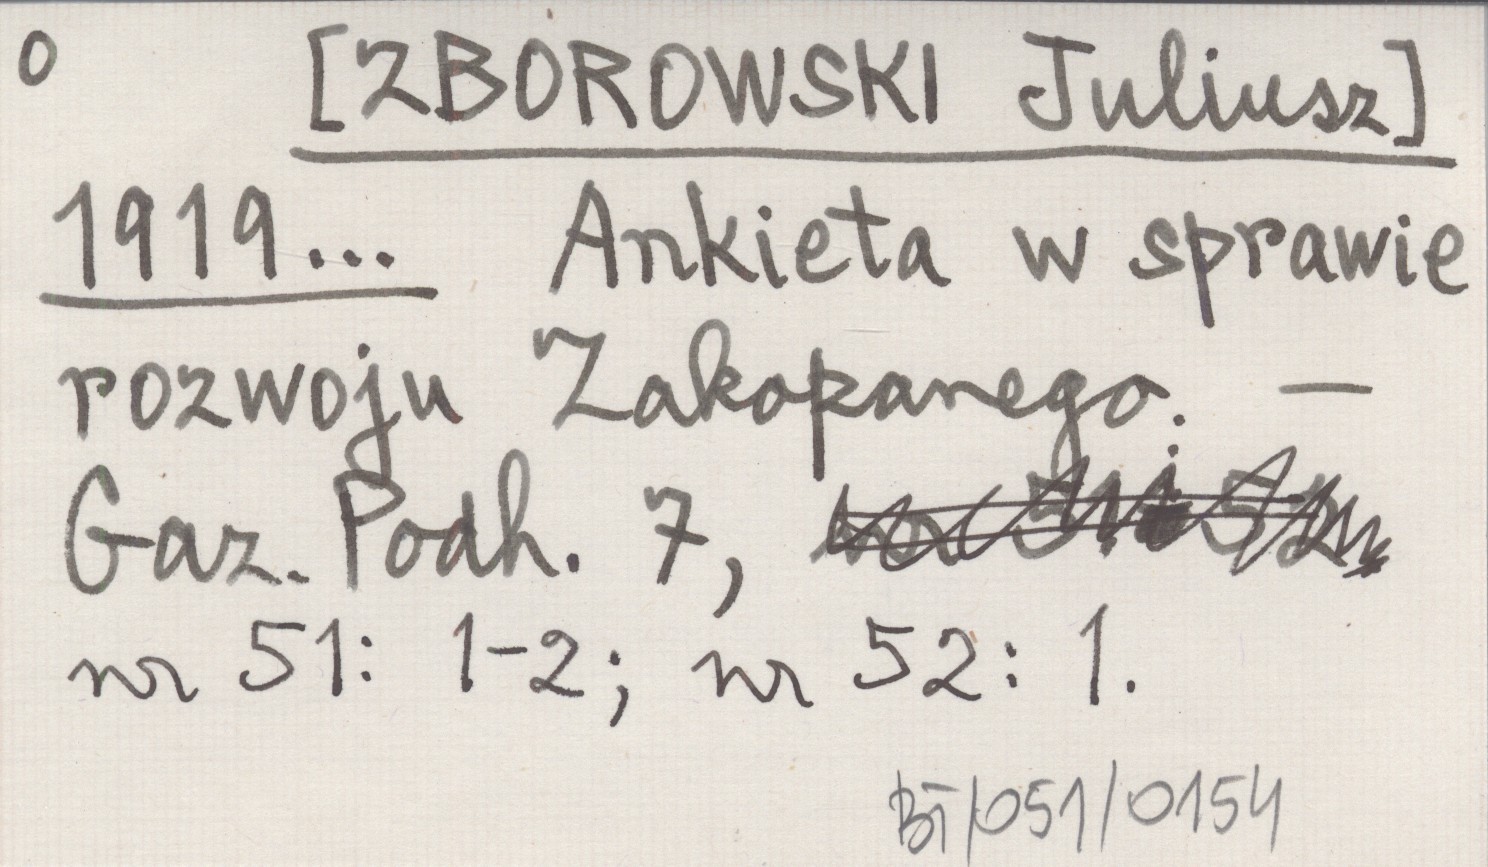 0 [ZBOROWSKI Juliusz]
1919... Ankieta w sprawie
rozwoju Zakopanego. —
Gaz. Podh. 7,
nr 51: 1-2; nr 52: 1.
BT/051/0154